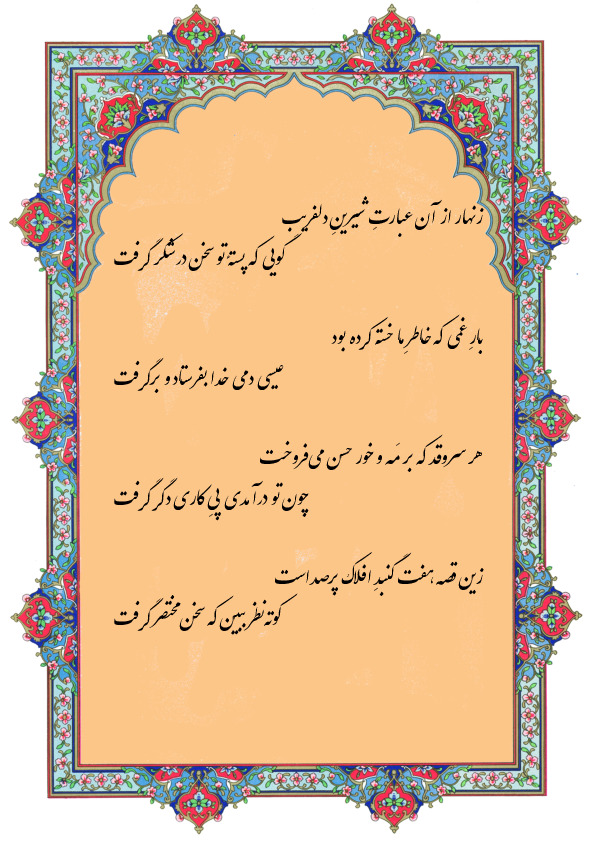 زنهار از آن عبارتِ شیرینِ دلفریب
گویی که پستهٔ تو سخن در شکر گرفت
بارِ غمی که خاطرِ ما خسته کرده بود
عیسی دمی خدا بفرستاد و برگرفت
هر سروقد که بر مَه و خور حسن می‌فروخت
چون تو درآمدی پِیِ کاری دگر گرفت
زین قصه هفت گنبدِ افلاک پرصداست
کوته نظر ببین که سخن مختصر گرفت